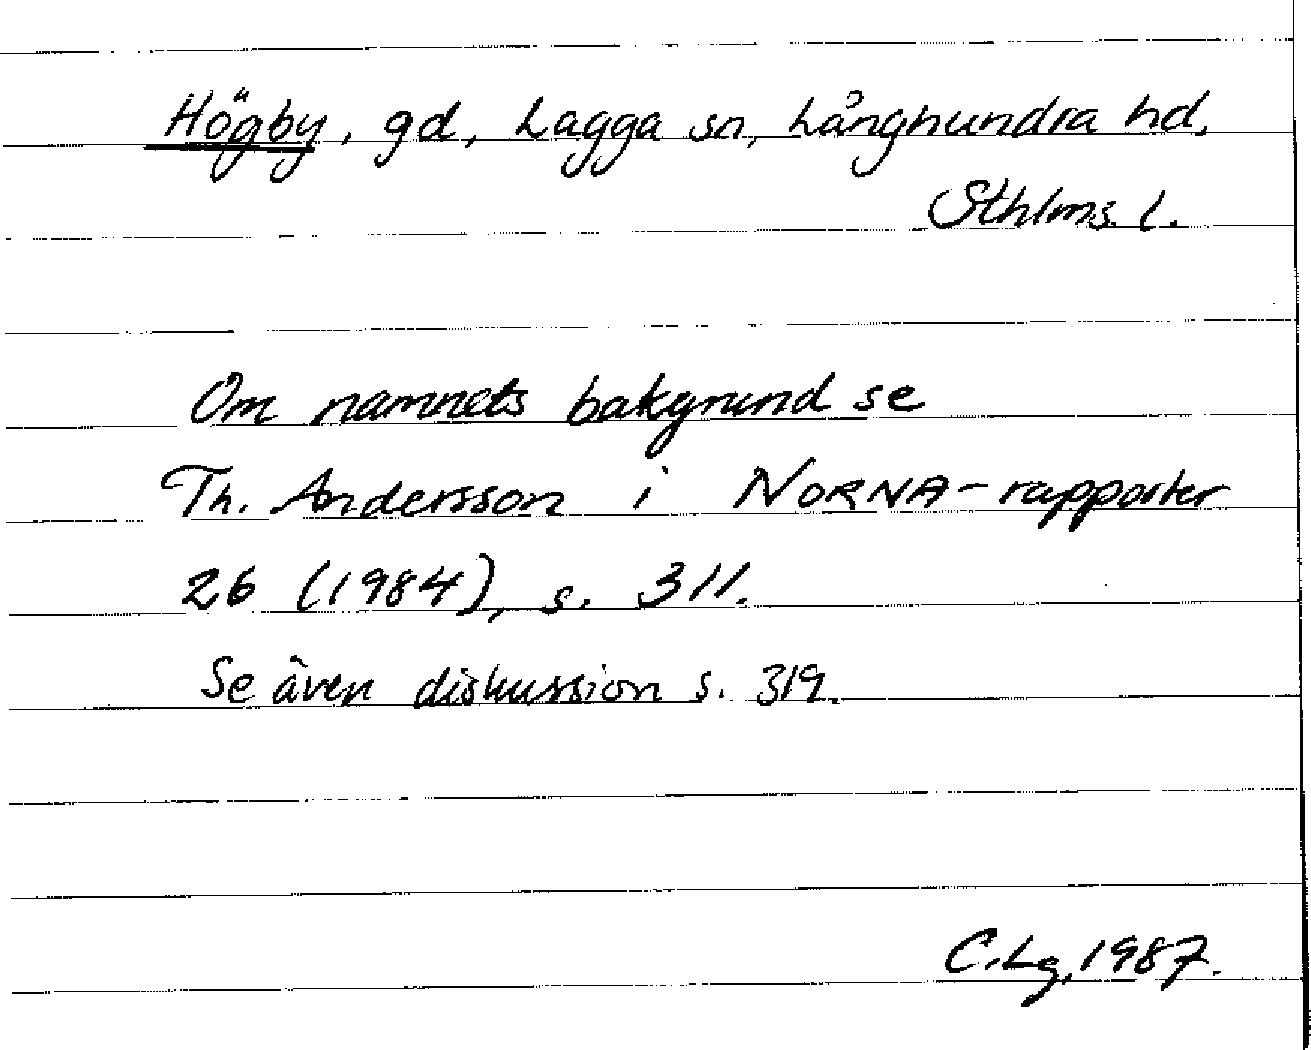 Högby, gd, Lagga sn, Långhundra hd,
Sthlms. l.
Om namnets bakgrund se
Th. Andersson i NORNA-rapporter
26 (1984), s. 311.
Se även diskussion s. 319.
C.Lg, 1987.